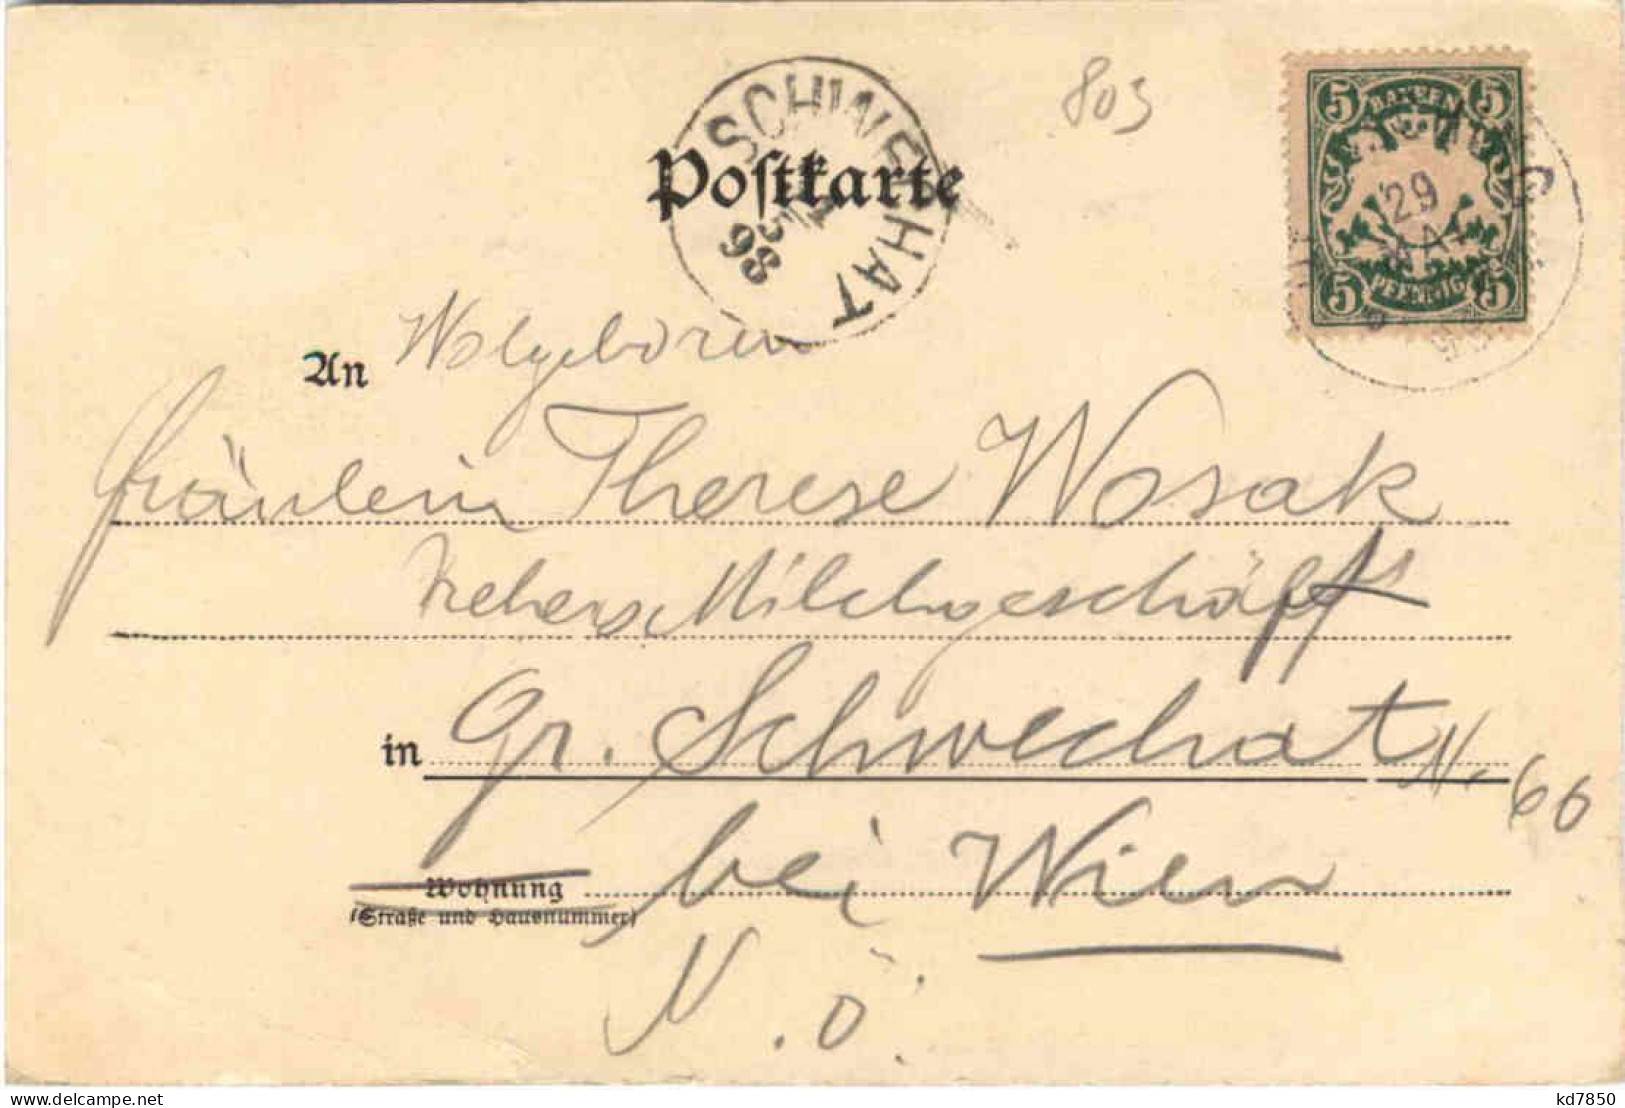 803
BAYERN
5 5
29
5 5
PFENNIG
SCHWECHAT
98
Postkarte
An Wolgeboren
Fräulein Therese Wosak
Milchgeschäft
in Gr. Schwechat No 66
Wohnung bei Wien
(Straße und Hausnummer)
N. Ö.
kd7850